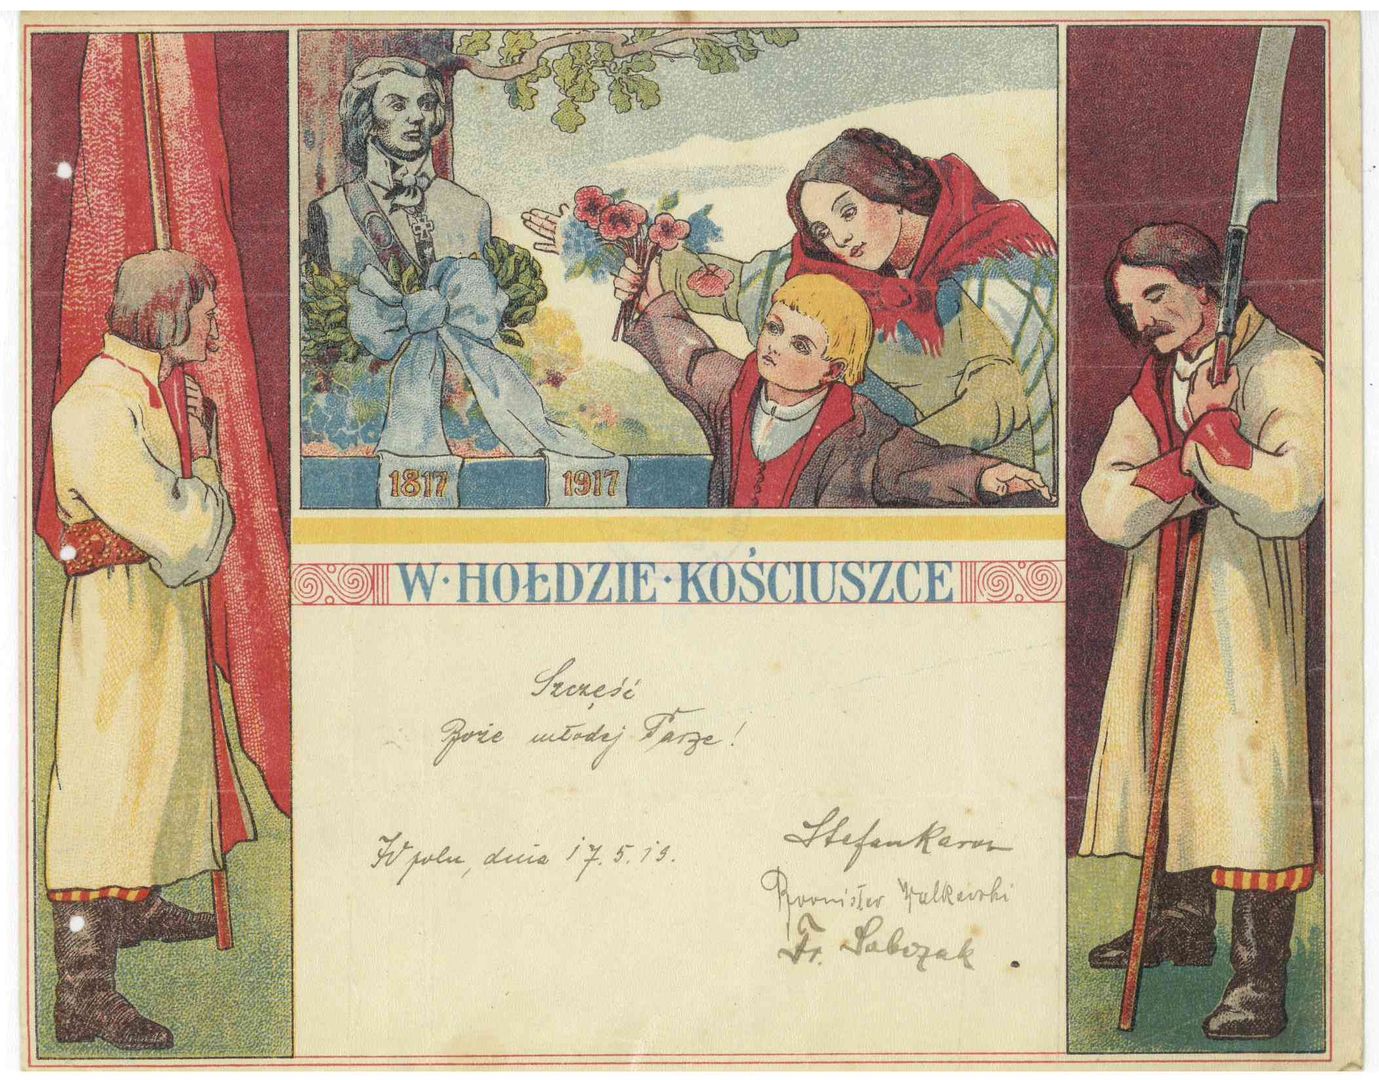 1817 1917
W·HOŁDZIE·KOŚCIUSZCE
Szczęść
Boże młodej Parze!
W polu, dnia 17.5.19.
Stefan Karon
Bronisław Walkowski
Fr. Sobczak